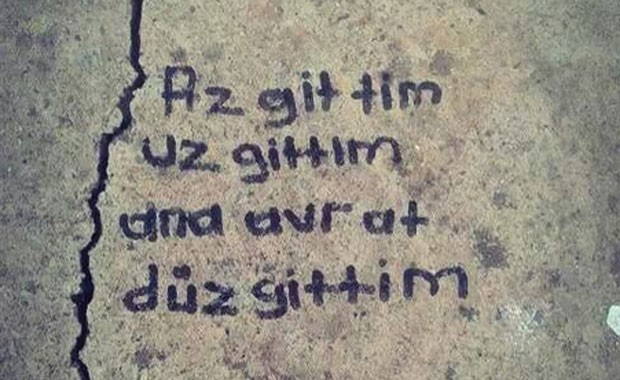 Az gittim
uz gittim
ana avrat
düz gittim